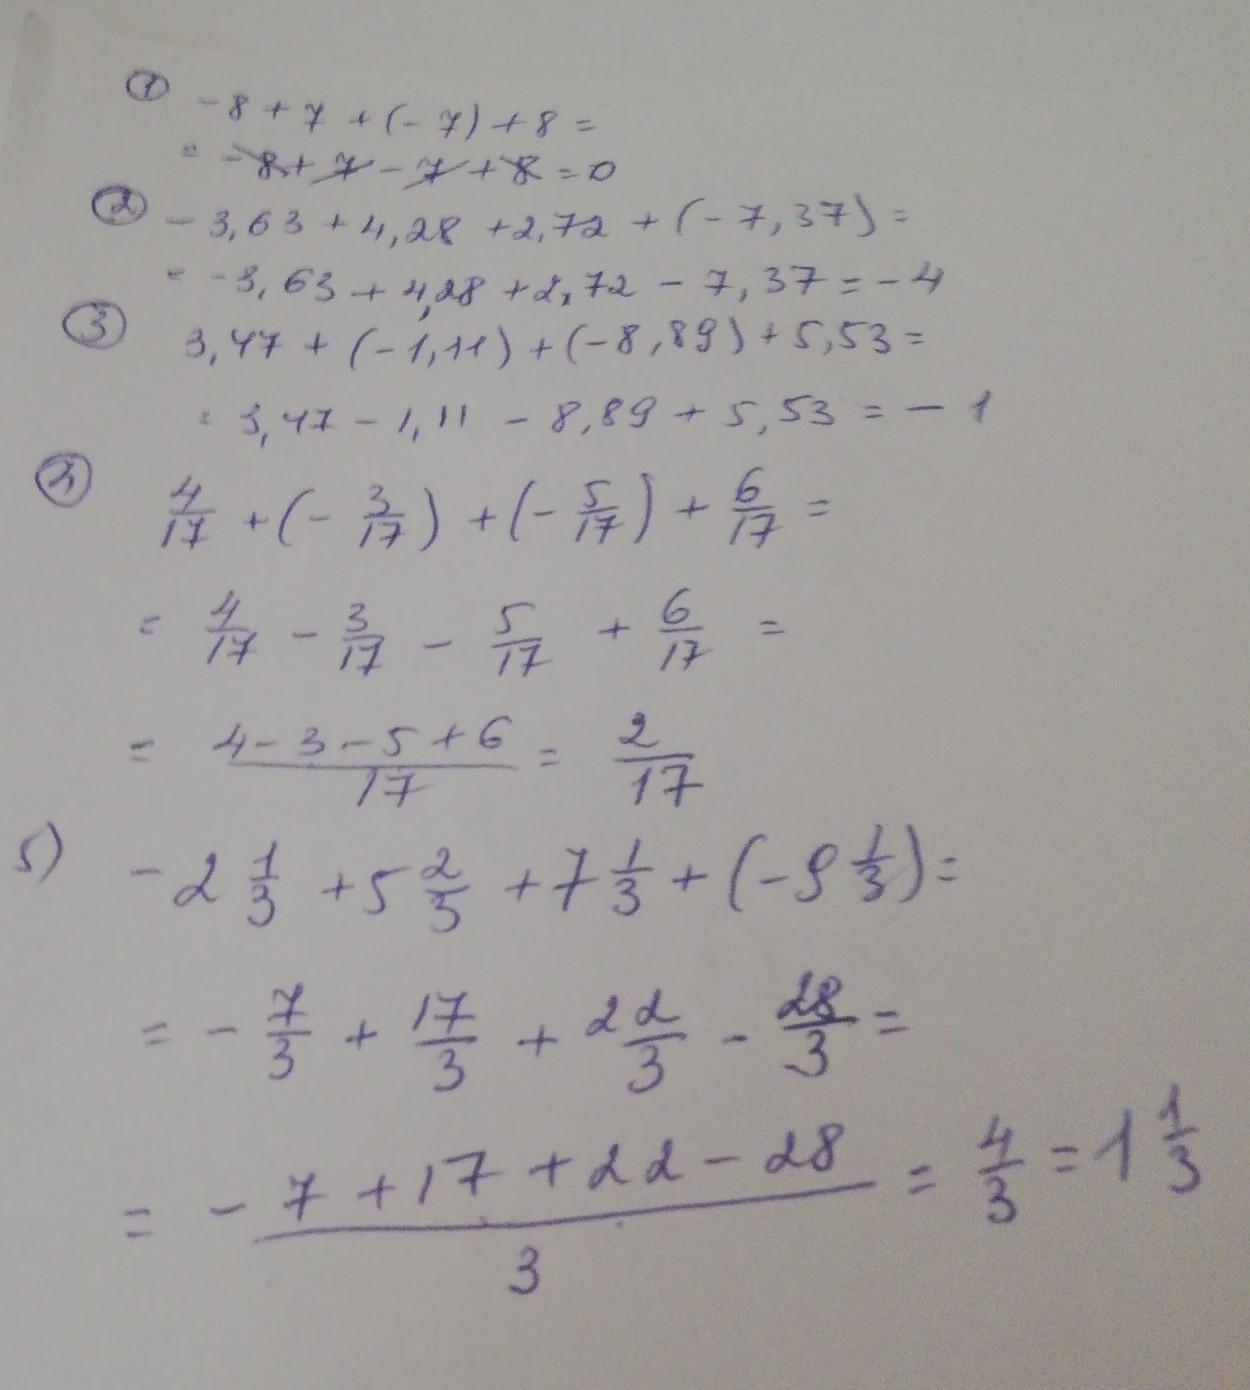 ① -8 + 7 + (-7) + 8 =
= -8 + 7 - 7 + 8 = 0
② -3,63 + 4,28 + 2,72 + (-7,37) =
= -3,63 + 4,28 + 2,72 - 7,37 = -4
③ 3,47 + (-1,11) + (-8,89) + 5,53 =
= 3,47 - 1,11 - 8,89 + 5,53 = -1
④ 4/17 + (-3/17) + (-5/17) + 6/17 =
= 4/17 - 3/17 - 5/17 + 6/17 =
= (4 - 3 - 5 + 6)/17 = 2/17
5) -2 1/3 + 5 2/3 + 7 1/3 + (-9 1/3) =
= -7/3 + 17/3 + 22/3 - 28/3 =
= (-7 + 17 + 22 - 28)/3 = 4/3 = 1 1/3